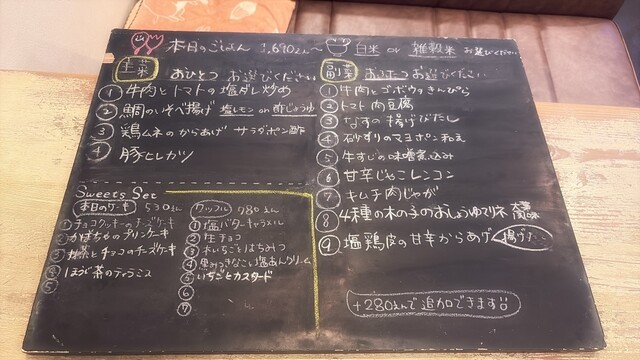 本日のごはん 1,690えん～ 白米 or 雑穀米 お選びください
主菜 おひとつ お選びください
① 牛肉とトマトの塩ダレ炒め
② 鯛のいそべ揚げ 塩レモン or 酢じょうゆ
③ 鶏ムネのからあげ サラダポン酢
④ 豚ヒレカツ
副菜 おふたつ お選びください
① 牛肉とゴボウのきんぴら
② トマト肉豆腐
③ なすの揚げびたし
④ 砂ずりのマヨポン和え
⑤ 牛すじの味噌煮込み
⑥ 甘辛じゃこレンコン
⑦ キムチ肉じゃが
⑧ 4種の木の子のおしょうゆマリネ
⑨ 塩鶏皮の甘辛からあげ
+280えんで追加できます
Sweets Set
本日のケーキ 530えん
① チョコクッキーのチーズケーキ
② かぼちゃのプリンケーキ
③ 抹茶とチョコのチーズケーキ
④ ほうじ茶のティラミス
⑤
ワッフル 780えん
① 塩バターキャラメル
② 生チョコ
③ 木いちごとはちみつ
④ 黒みつきなこ 塩あんクリーム
⑤ いちごとカスタード
⑥
⑦